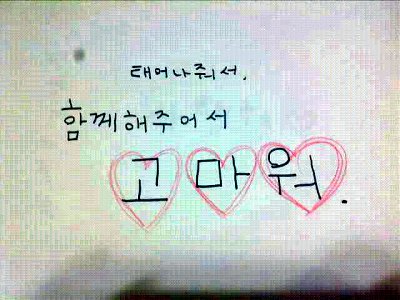 태어나줘서.
함께해주어서
고마워.